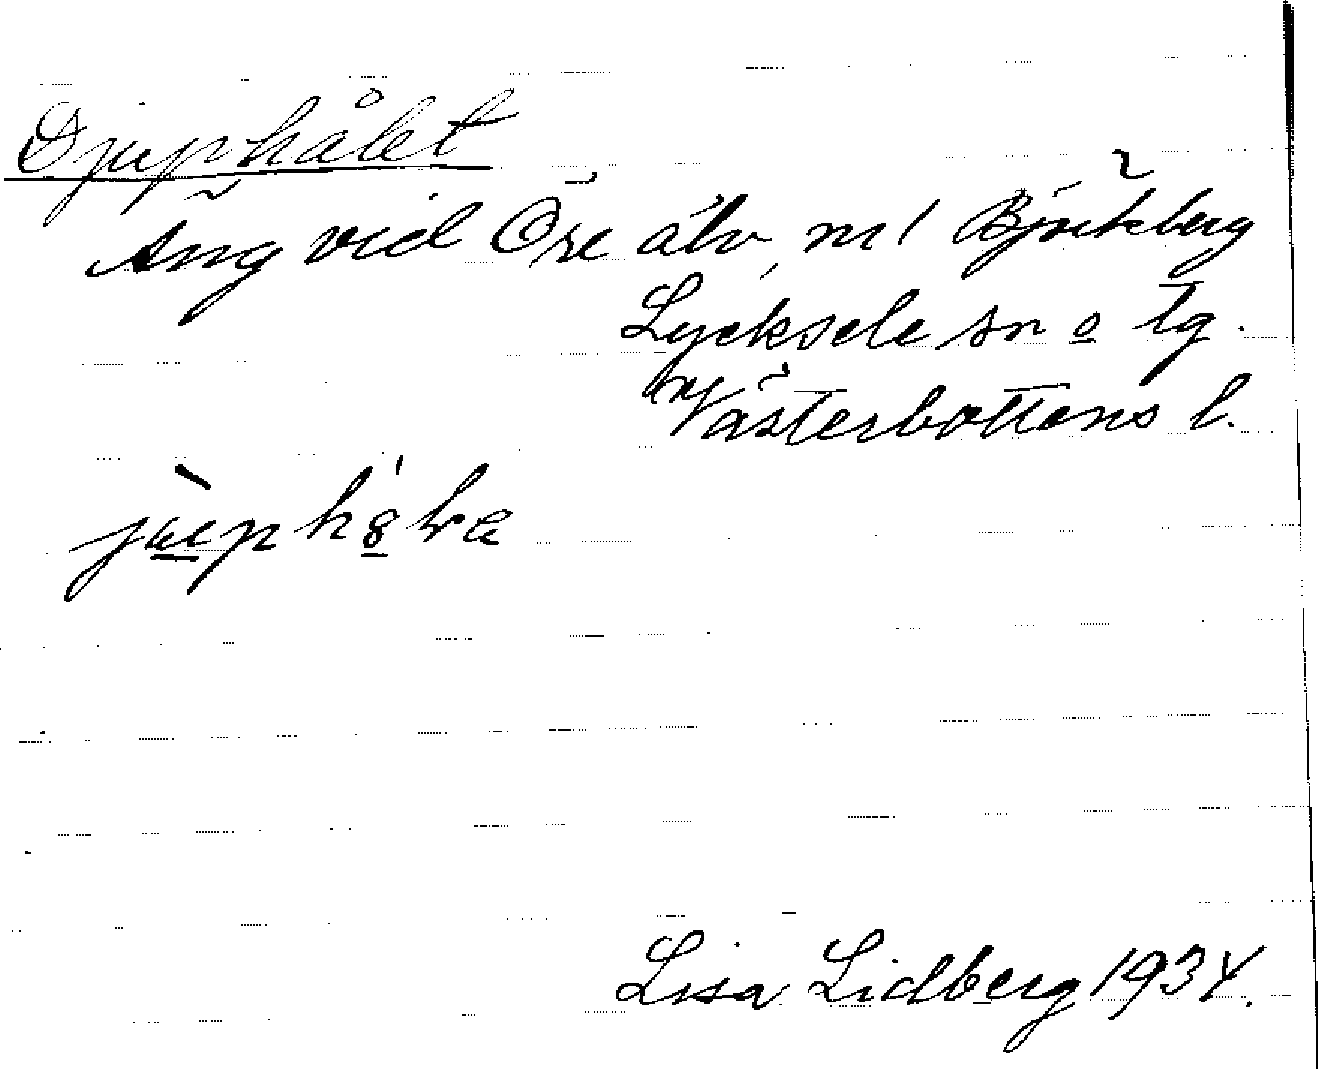 Djuphålet
Äng vid Öre älv, nr 1 Björkberg
Lycksele sn o tg.
Västerbottens l.
Lisa Lidberg 1934.